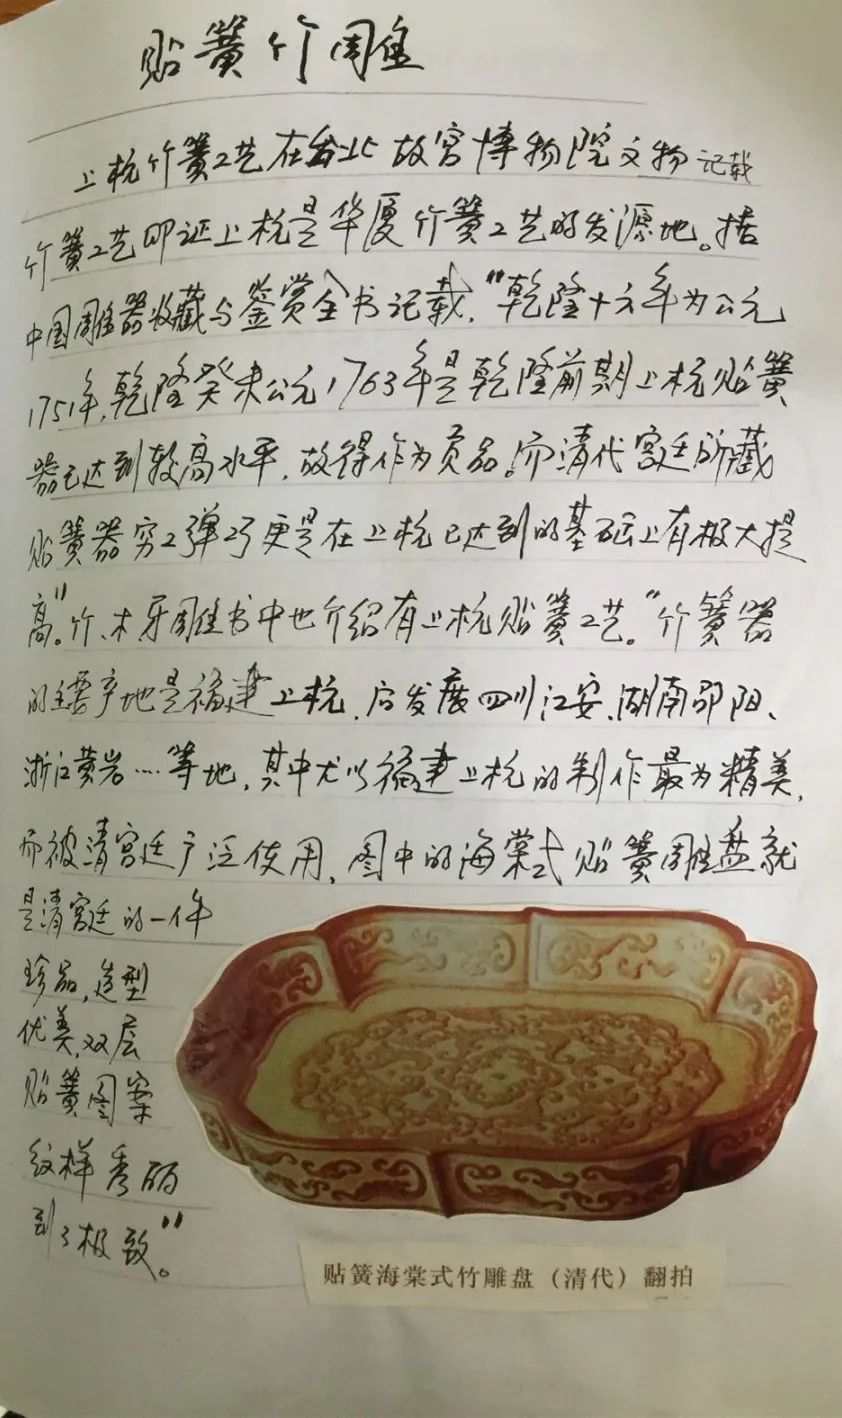 贴簧竹雕
上杭竹簧工艺在台北故宫博物院文物记载
竹簧工艺印证上杭是华厦竹簧工艺的发源地。据
中国雕器收藏与鉴赏全书记载，“乾隆十六年为公元
1751年，乾隆癸未公元1763年是乾隆前期上杭贴簧
器已达到较高水平，故得作为贡品。而清代宫廷所藏
贴簧器穷工弹巧更是在上杭已达到的基础上有极大提
高”。竹、木牙雕书中也介绍有上杭贴簧工艺。“竹簧器
的主要产地是福建上杭，后发展四川江安、湖南邵阳、
浙江黄岩……等地，其中尤以福建上杭的制作最为精美，
而被清宫廷广泛使用，图中的海棠式贴簧雕盘就
是清宫廷的一件
珍品，造型
优美，双层
贴簧图案
纹样秀丽
到了极致”。
贴簧海棠式竹雕盘（清代）翻拍